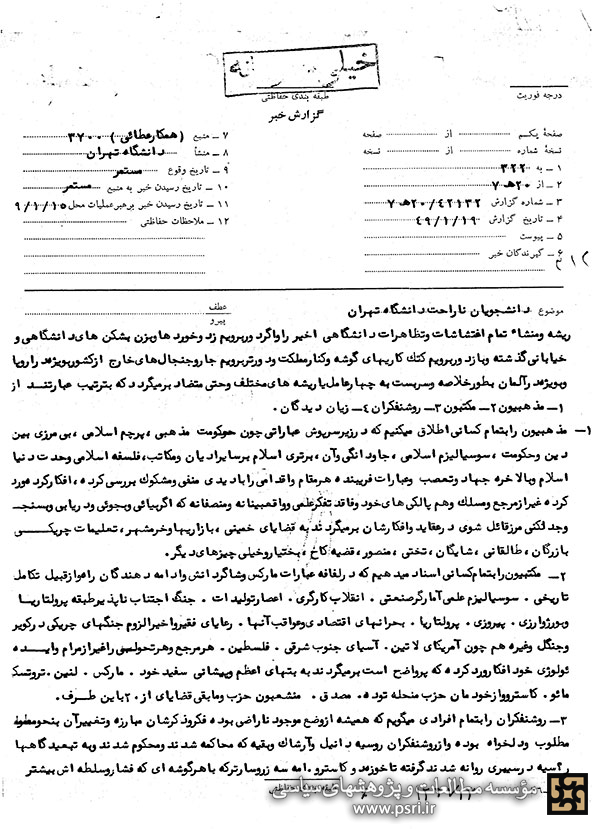 خیلی
درجه فوریت
طبقه بندی حفاظتی
گزارش خبر
صفحهٔ یکم از صفحه
نسخهٔ شماره از نسخه
۱ ـ به ۳۲۲
۲ ـ از ۲۰هـ۷
۳ ـ شماره گزارش ۲۰/۴۲۱۳۲هـ۷
۴ ـ تاریخ گزارش ۴۹/۱/۱۹
۵ ـ پیوست
۶ ـ گیرندگان خبر
۷ ـ منبع (همکار عطائی) ۳۷۰۰
۸ ـ منشأ دانشگاه تهران
۹ ـ تاریخ وقوع مستمر
۱۰ ـ تاریخ رسیدن خبر به منبع مستمر
۱۱ ـ تاریخ رسیدن خبر برهبر عملیات محل ۹/۱/۱۵
۱۲ ـ ملاحظات حفاظتی
موضوع دانشجویان ناراحت دانشگاه تهران
عطف
پیرو
ریشه ومنشاء تمام اغتشاشات وتظاهرات دانشگاهی اخیر را واگرد وربرویم زد وخورد ها وبزن بشکن های دانشگاهی و
خیابانی گذشته وباز د وربرویم کتک کاریهای گوشه وکنار مملکت ود ورتر برویم جاروجنجال های خارج ازکشور بویژه د راروپا
وبویژه د رآلمان بطور خلاصه وسربست به چهار عامل با ریشه های مختلف وحتی متضاد برمیگرد د که بترتیب عبارتند از
۱ـ مذ هبیون ۲ـ مکتبون ۳ـ روشنفکران ۴ـ زیان د یدگان .
۱ـ مذ هبیون را بتمام کسانی اطلاق میکنیم که د رزیر سرپوش عباراتی چون حوکومت مذ هبی ، پرچم اسلامی ، بی مرزی بین
د ین وحکومت ، سوسیالیزم اسلامی ، جاود انگی وآن ، برتری اسلام برسایر اد یان ومکاتب ، فلسفه اسلامی وحدت د نیا
اسلام وبالا خره جهاد وتعصب وعبارات فریبند ه هرمقام واقد امی را با د ید ی منفی ومشکوک بررسی کرد ه ، افکار کرد ه مورد
کرد ه غیر ازمرجع ومسلک وهم پالکی های خود وفاقد تفکر علمی وواقعبینانه ومنصفانه که اگر بیائی وبجوئی ود ریابی وبسنجـ
وجد لکنی مرز قائل شوی د رعقاید وافکارشان برمیگرد ند به قضایای خمینی ، بازاریها وخرمشهر ، تعلیمات چریکــی
بازرگان ، طالقانی ، شایگان ، تختی ، منصور ، قضیه کاخ ، بختیار وخیلی چیزهای د یگر .
۲ـ مکتبیون را بتمام کسانی اسناد مید هیم که د رلفافه عبارات مارکس وشاگرد انش واد امه د هند گان راه او از قبیل تکامل
تاریخی . سوسیالیزم علمی آمار گر صنعتی . انقلاب کارگری . اعصار تولید ات . جنگ اجتناب ناپذ یر طبقه پرولتاریـا
وبورژوازی . پیروزی . پرولتاریا . بحرانهای اقتصاد ی وعواقب آنها . رعایای فقیر واخیرا لزوم جنگهای چریکی د رکویر
وجنگل وغیره هم چون آمریکای لا تین . آسیای جنوب شرقی . فلسطین . هر مرجع وهر تحولسی را غیر از مرام وایــد ه
ئولوژی خود افکار ورد کرد ه که پرواضح است برمیگرد ند به بتهای اعظم وپیشانی سفید خود . مارکس . لنین . تروتسک
مائو . کاسترو وازخود مان حزب منحله توده . مصد ق . منشعبون حزب ومابقی قضایای از ۲۰ باین طــرف .
۳ـ روشنفکران را بتمام افراد ی میگویم که همیشه ازوضع موجود ناراضی بود ه فکر وذ کرشان مبارزه وتغییرآن بنحو مطلو
مطلوب ود لخواه بود ه واز روشنفکران روسیه د انیل وآرشاک وبقیه که محاکمه شد ند ومحکوم شد ند وبه تبعید گاهها
روانه شد ند گرفته تا خوزه د وکاسترو . امه سه زروسارتر که با هر گوشه ای که فشار وسلطه اش بیشتر
مؤسسه مطالعات و پژوهشهای سیاسی
www.psri.ir